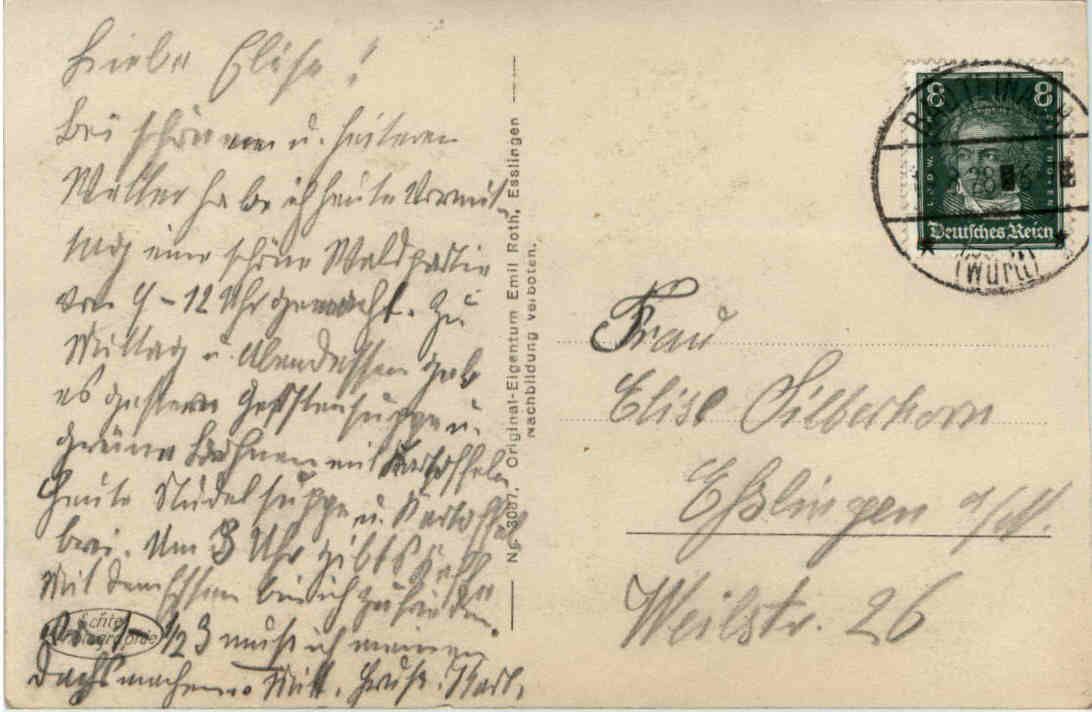 Liebe Elise!
Bei schönem u. heiteren
Wetter habe ich heute Vormit
tag eine schöne Waldpartie
von 9 - 12 Uhr gemacht. Zu
Mittag u. Abendessen gab
es gestern Gerstensuppe u.
grüne Bohnen mit Kartoffeln
heute Nudelsuppe u. Kartoffel
brei. Um 3 Uhr gibts Kaffee
Mit dem Essen bin ich zufrieden.
1/2 3 muß ich meinen
Dachs machen. Mitt. Karl.
Echte
Photographie
No. 3087. Original-Eigentum Emil Roth, Esslingen
Nachbildung verboten.
8 8
LUDW.
Deutsches Reich
(Württ)
Frau
Elise Silberhorn
Eßlingen a/N.
Weilstr. 26